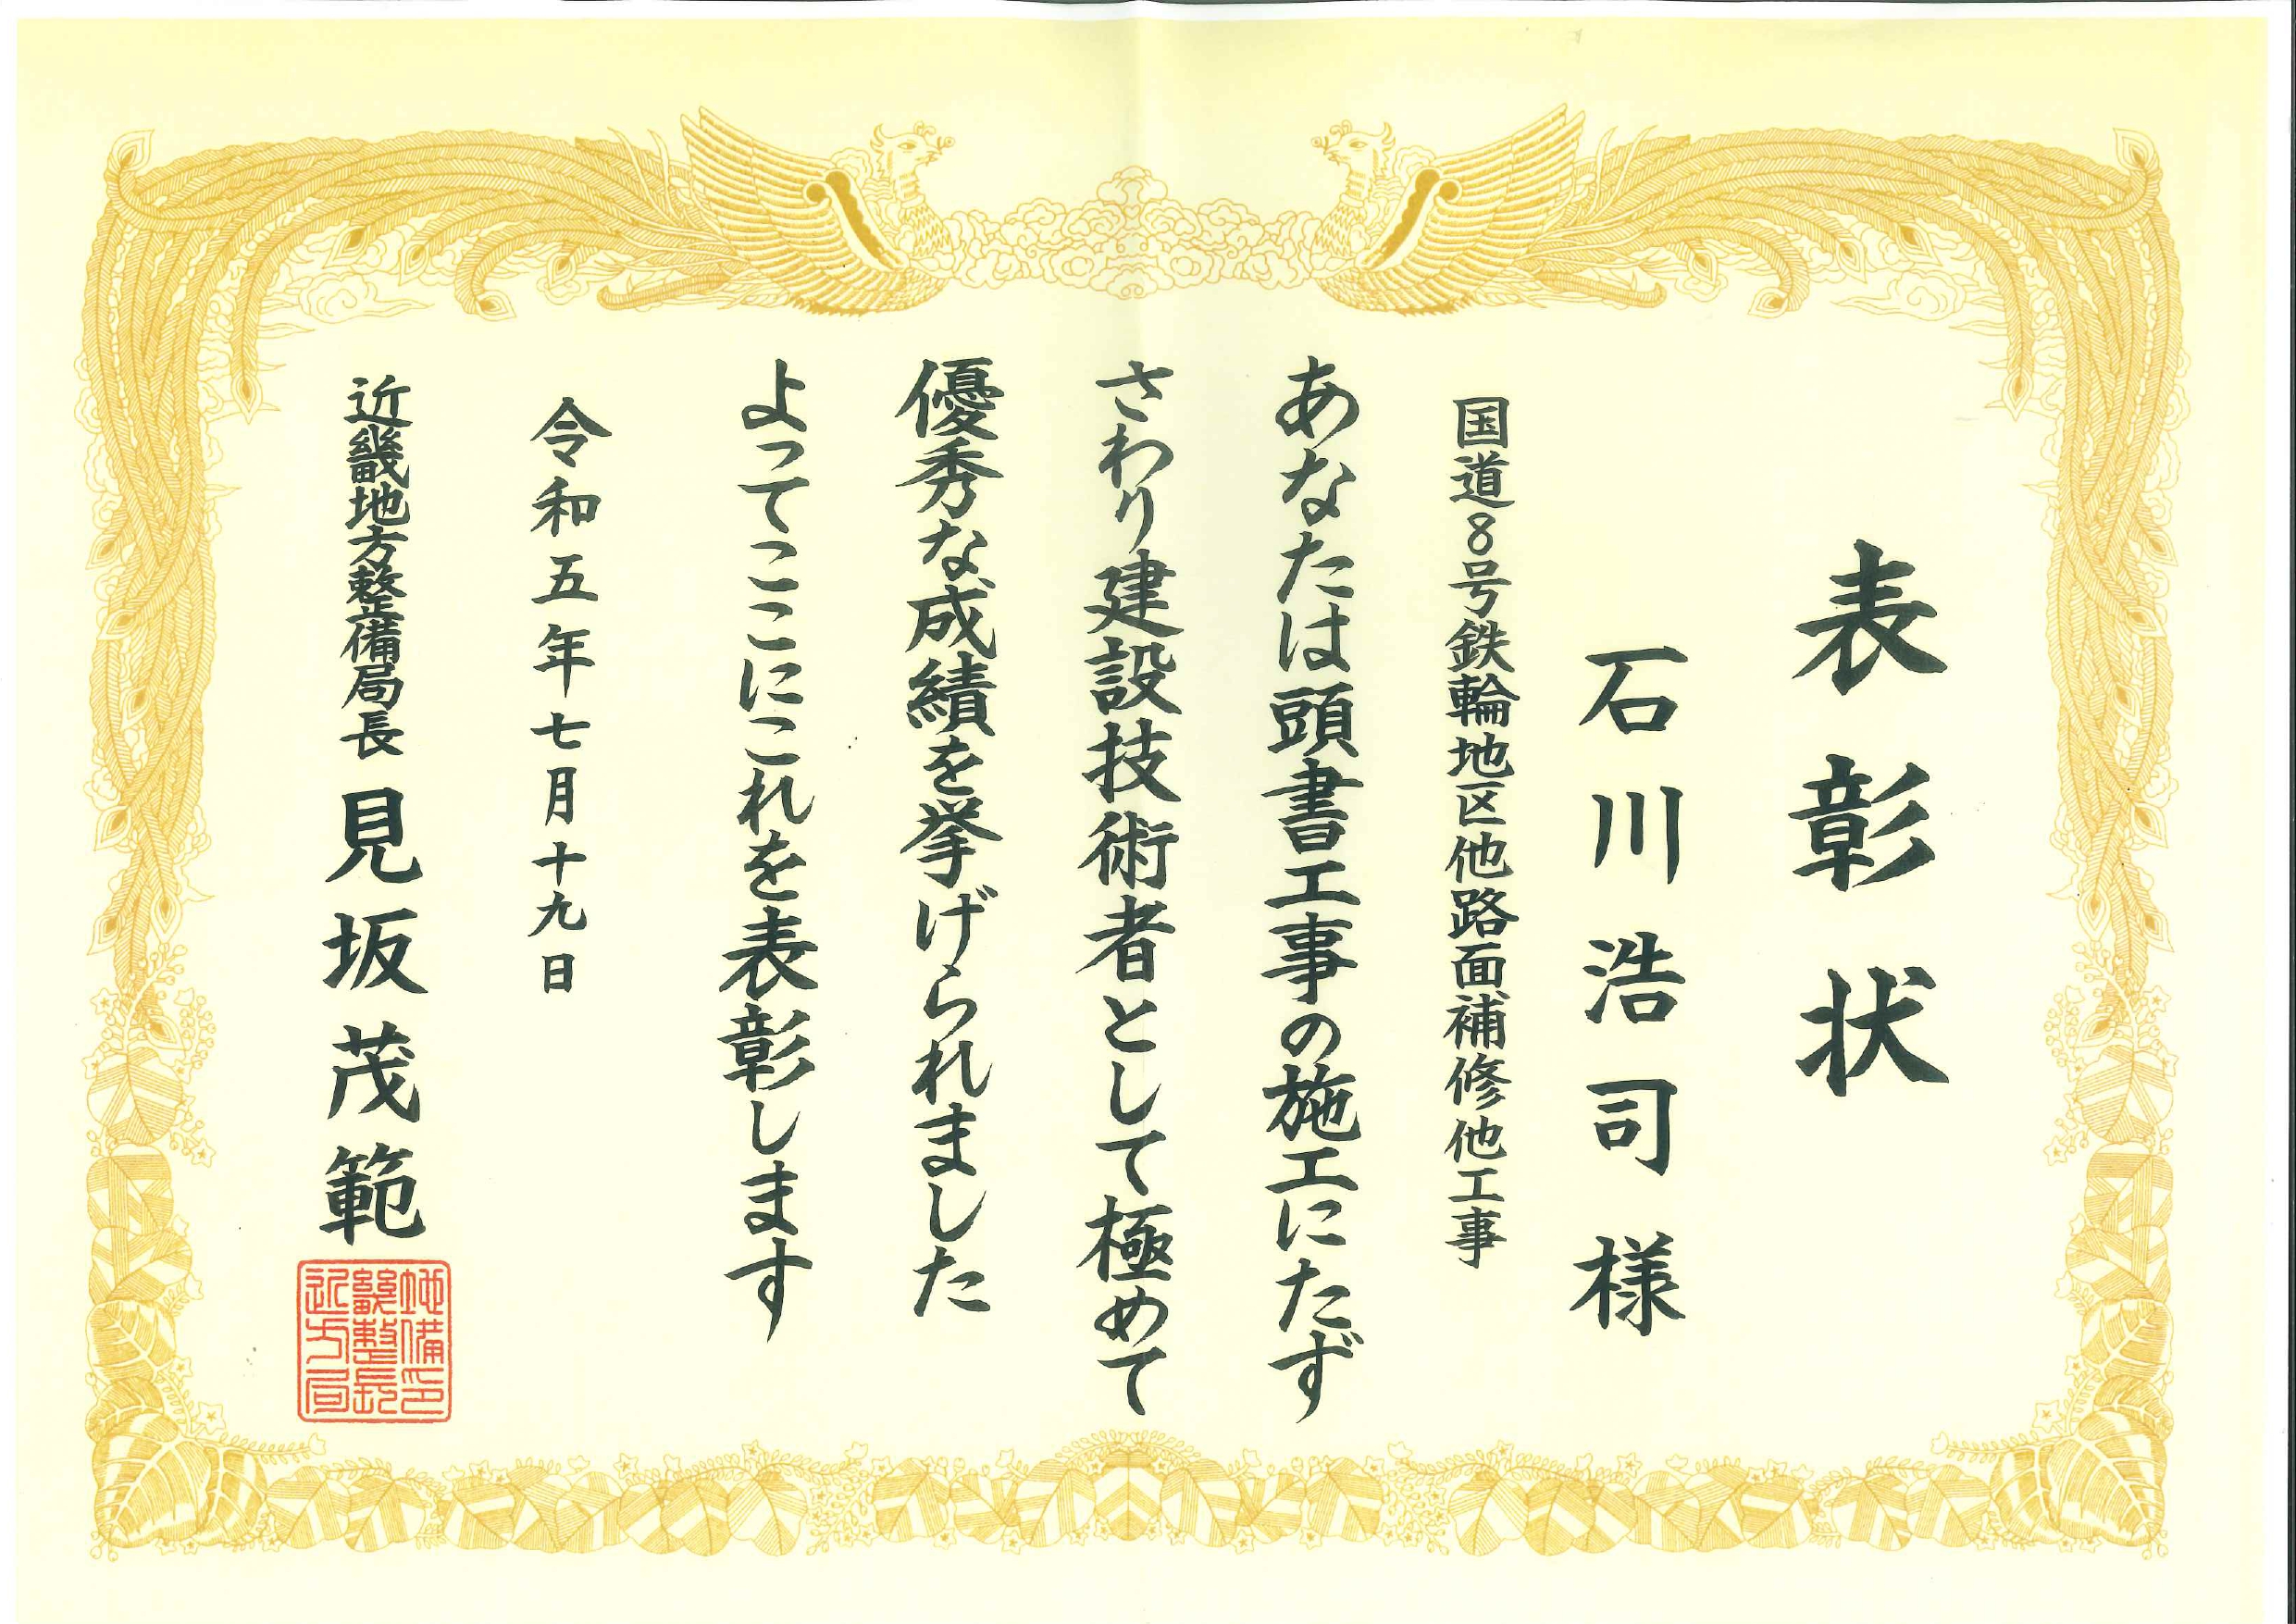 表彰状
石川浩司様
国道8号鉄輪地区他路面補修他工事
あなたは頭書工事の施工にたず
さわり建設技術者として極めて
優秀な成績を挙げられました
よってここにこれを表彰します
令和五年七月十九日
近畿地方整備局長 見坂茂範
近畿地方整備局長印